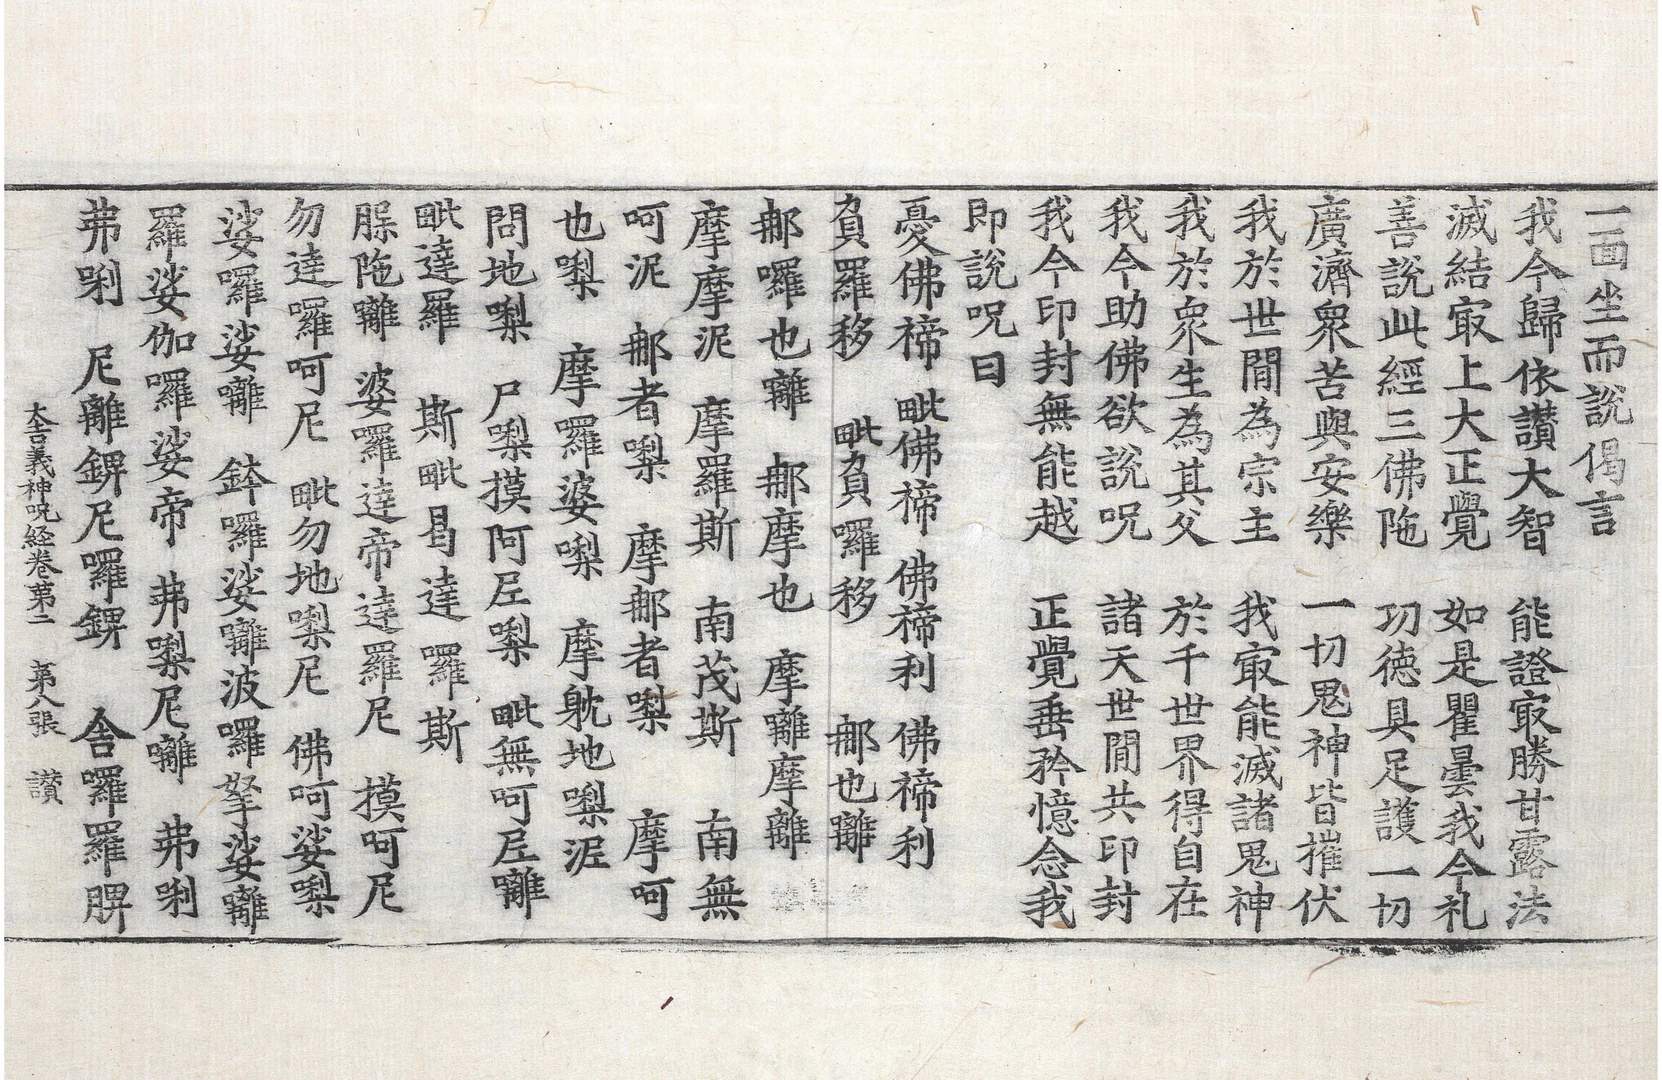 一面坐而說偈言
我今歸依讃大智　能證㝡勝甘露法
滅結㝡上大正覺　如是瞿曇我今礼
善說此經三佛陁　功德具足護一切
廣濟衆苦與安樂　一切鬼神皆摧伏
我於世閒為宗主　我㝡能滅諸鬼神
我於衆生為其父　於千世界得自在
我今助佛欲說呪　諸天世閒共印封
我今印封無能越　正覺垂矜憶念我
即說呪曰
憂佛㖒　毗佛㖒　佛㖒利　佛㖒利
負羅移　毗負囉移　那也囄
那囉也囄　那摩也　摩囄摩囄
摩摩泥　摩羅斯　南茂斯　南無
呵泥　那者𠼝　摩那者𠼝　摩呵
也𠼝　摩羅婆𠼝　摩躭地𠼝泥
問地𠼝　尸𠼝摸阿𡰱𠼝　毗無呵𡰱囄
毗達羅　斯毗曷達羅斯
脲陁囄　婆囉達帝達羅尼　摸呵尼
勿達囉呵尼　毗勿地𠼝尼　佛呵娑𠼝
娑囉娑囄　鉢囉娑囄波囉拏娑囄
羅娑伽囉娑帝　弗𠼝尼囄　弗唎
弗唎　尼離錍尼囉錍　舍囉羅脾
大吉義神呪経卷苐二　苐八張　讃